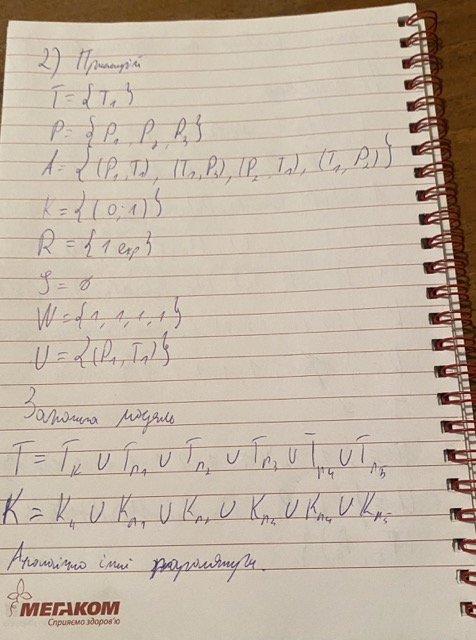 2) Принтери
T = {T₁}
P = {P₁, P₂, P₃}
A = {(P₁, T₁), (T₁, P₃), (P₂, T₁), (T₁, P₂)}
K = {(0; 1)}
R = {1 exp}
S = ∅
W = {1, 1, 1, 1}
U = {(P₁, T₁)}
модель
T = Tк ∪ Tп₁ ∪ Tп₂ ∪ Tп₃ ∪ Tп₄ ∪ Tп₅
K = Kк ∪ Kп₁ ∪ Kп₂ ∪ Kп₃ ∪ Kп₄ ∪ Kп₅
Аналогічно інші параметри.
МЕГАКОМ
Сприяємо здоров'ю